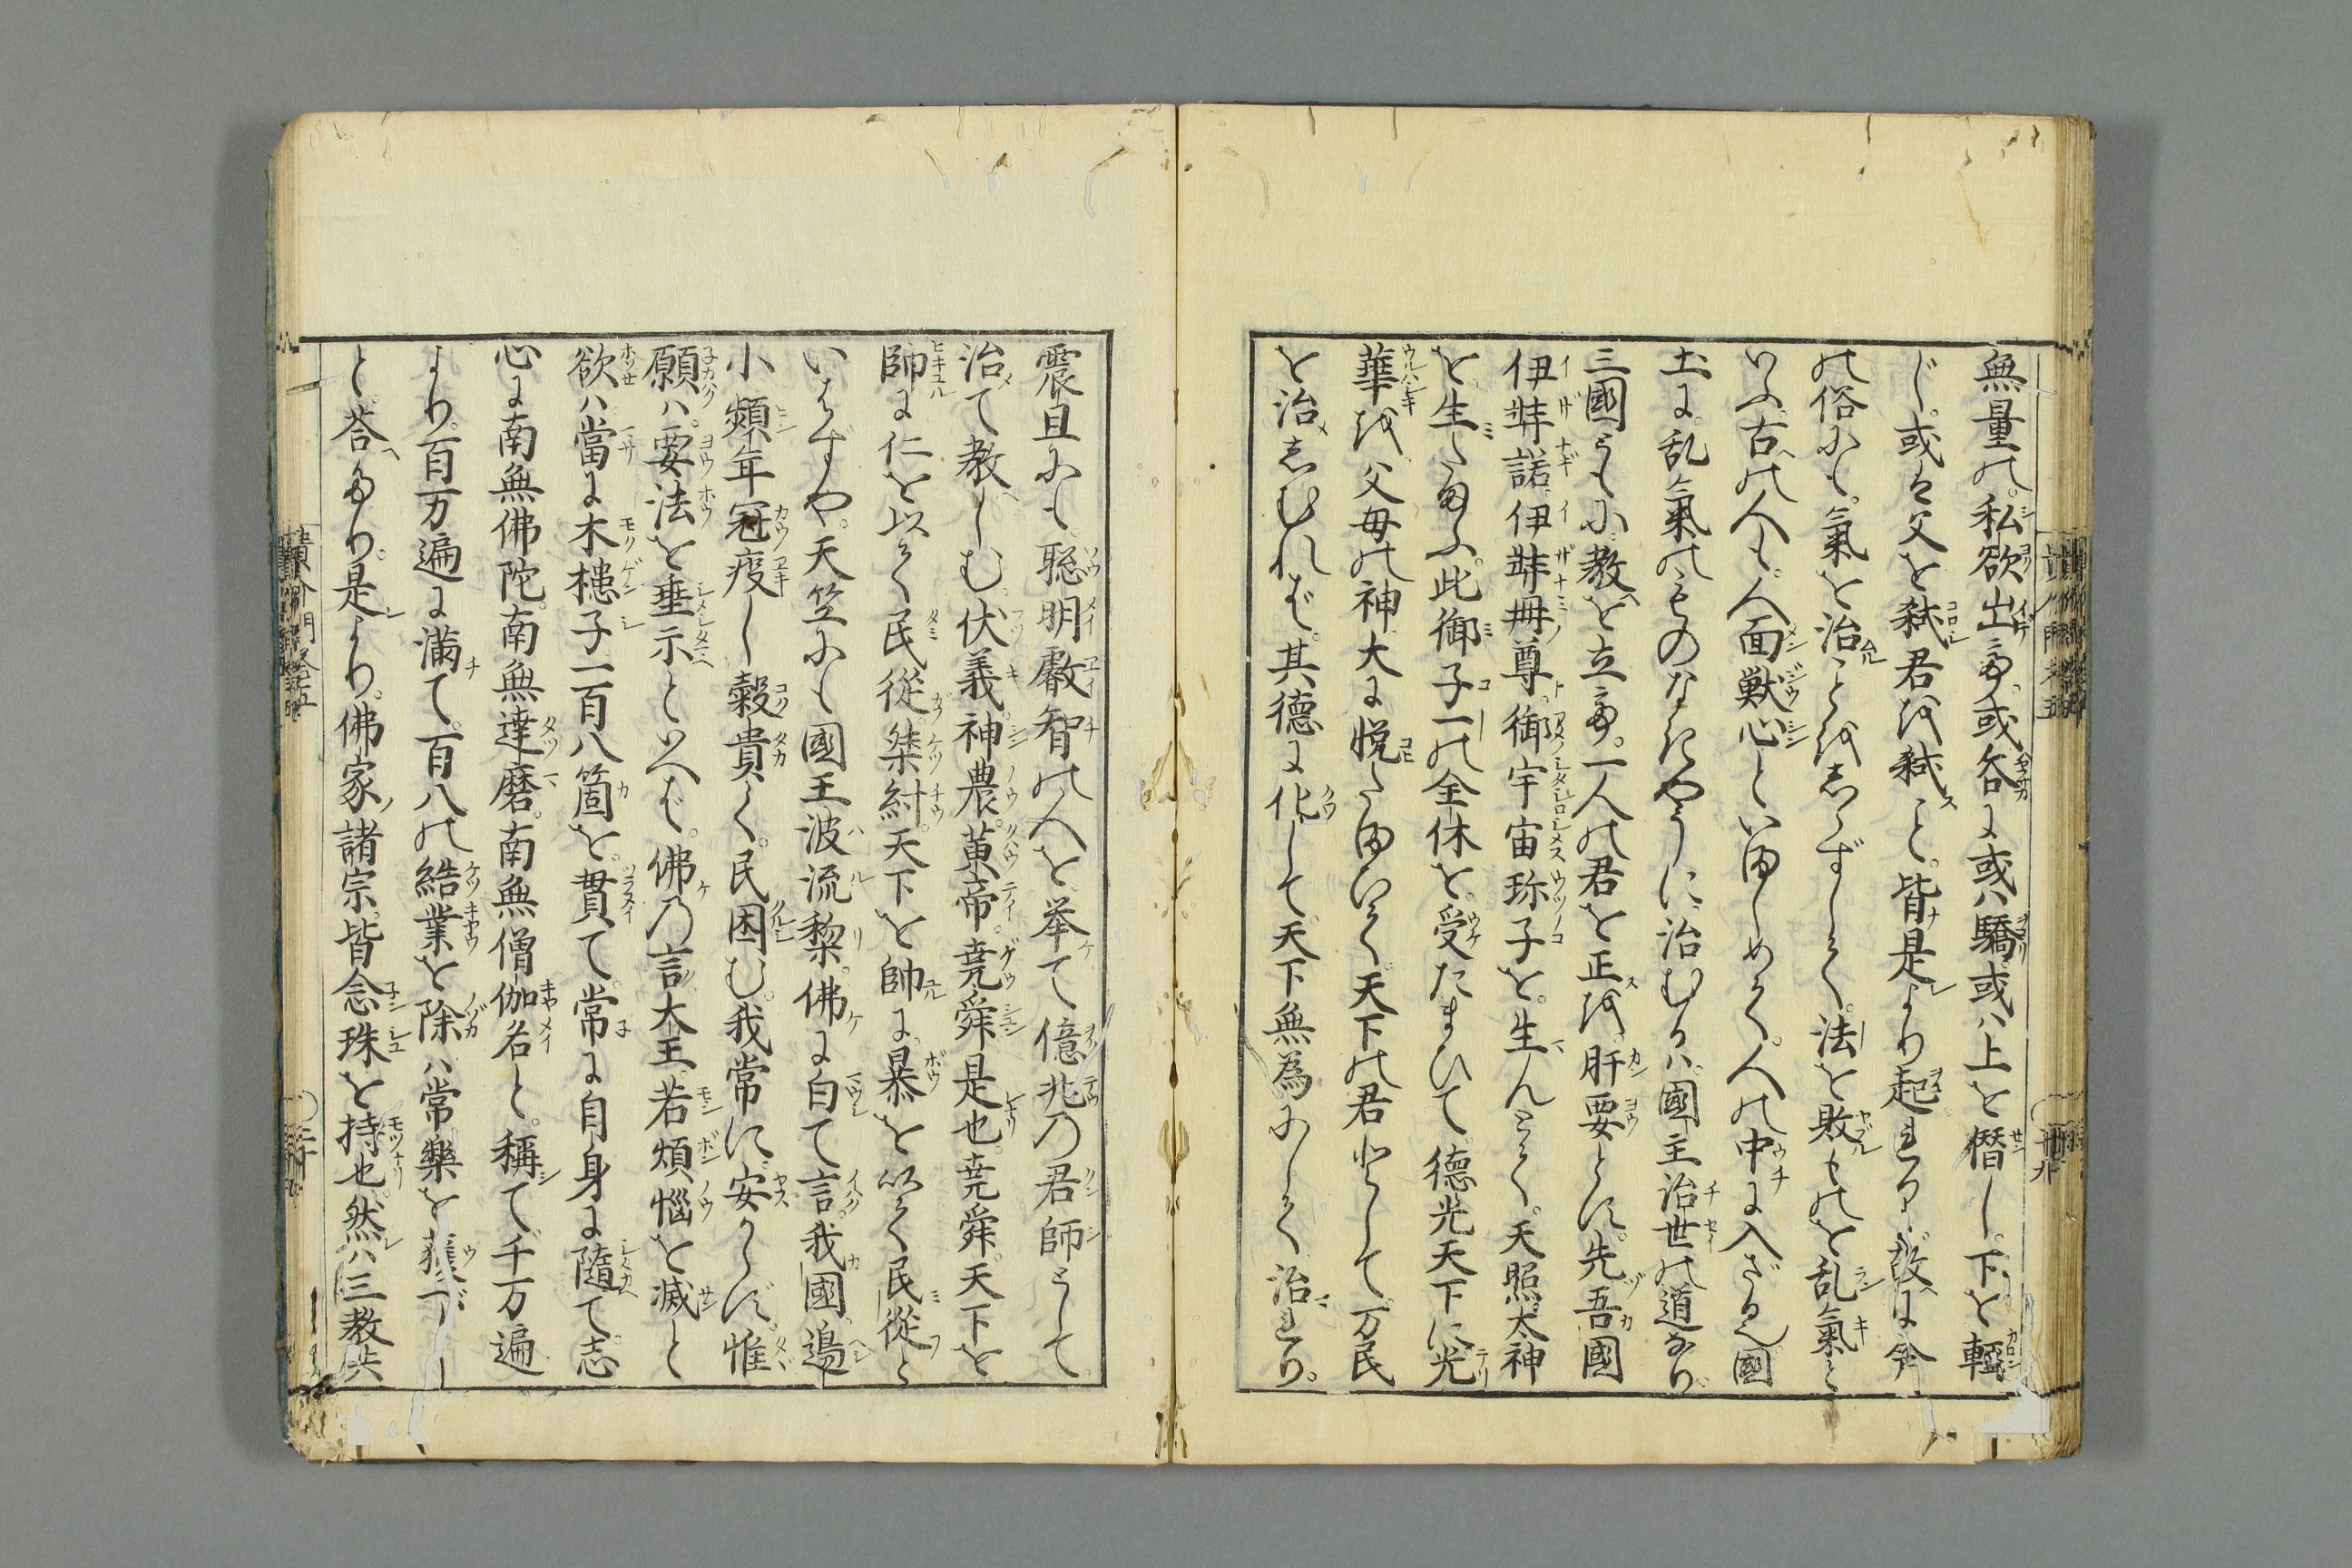 無量の私欲出て。或咎に或ハ驕。或ハ上を僭し。下を軽
じ。或は父を弑君を弑こと。皆是より起れり。故に今
の俗にも。氣を治ことをしらずして。法を敗ものを乱氣と
いふ。古の人も。人面獣心といましめて。人の中に入ざる也國
土に。乱氣のものなきやうに治むるハ。國主治世の道なり。
三國ともに教を立て。一人の君を正を肝要とす。先吾國
伊弉諾伊弉冊尊。御宇宙珎子を。生んとて。天照太神
を。生たまふ。此御子一の全体を。受たまひて。德光天下に光
華を。父母の神大に悦たまひて。天下の君として。万民
を治しむれば。其德に化して。天下無為にして治れり。
震旦にも。聡明叡智の人を。举て億兆乃君師として。
治て教しむ。伏義神農。黄帝。尭舜是也。尭舜。天下を
帥に仁を以て民従。桀紂。天下を帥に暴を以て民従と
いはずや。天竺にも國王波流黎。佛に白て言。我國邉
小頻年寇疫し穀貴く。民困む。我常に。安からず。惟
願ハ。要法を垂示といへば。佛乃言大王。若煩惱を滅と
欲ハ當に木槵子一百八箇を。貫て。常に自身に隨て志
心に南無佛陀。南無達磨。南無僧伽名と。稱て。千万遍
より。百万遍に満て。百八の結業を除ハ常樂を獲べし
と。荅たり。是より。佛家諸宗。皆念珠を持也。然ハ三教共